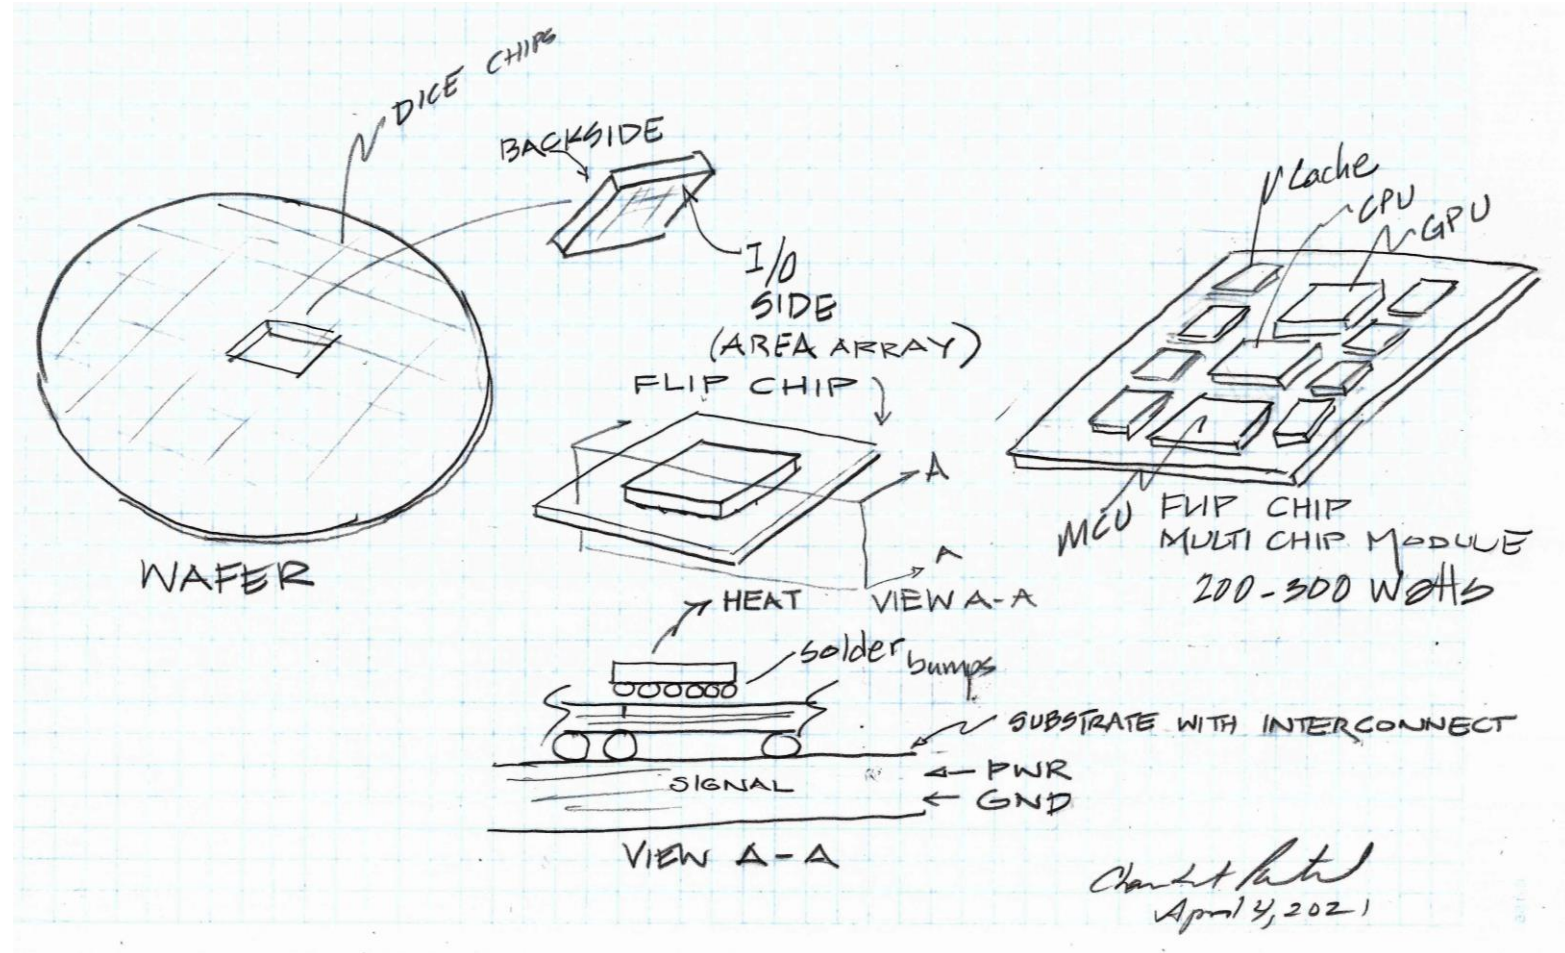 DICE CHIPS
BACKSIDE
I/O
SIDE
(AREA ARRAY)
FLIP CHIP
WAFER
A
A
VIEW A-A
HEAT
solder bumps
SUBSTRATE WITH INTERCONNECT
PWR
GND
SIGNAL
VIEW A-A
Cache
CPU
GPU
MCU
FLIP CHIP
MULTI CHIP MODULE
200-300 Watts
April 4, 2021